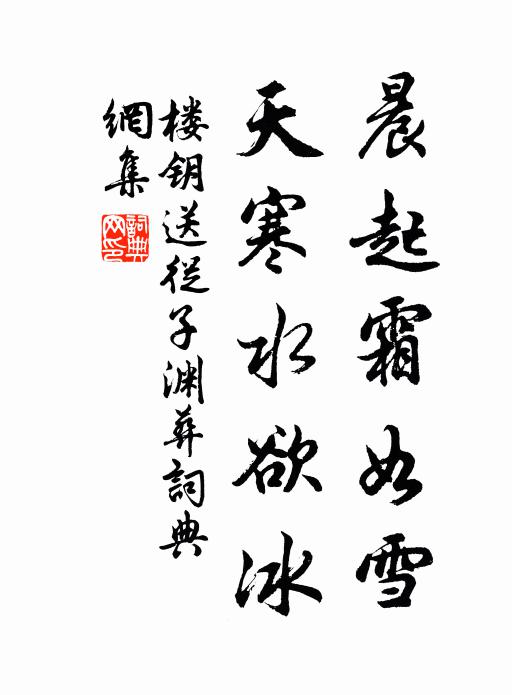 晨起霜如雪
天寒水欲冰
楼钥送従子渊葬詞典
網集
詞典网印